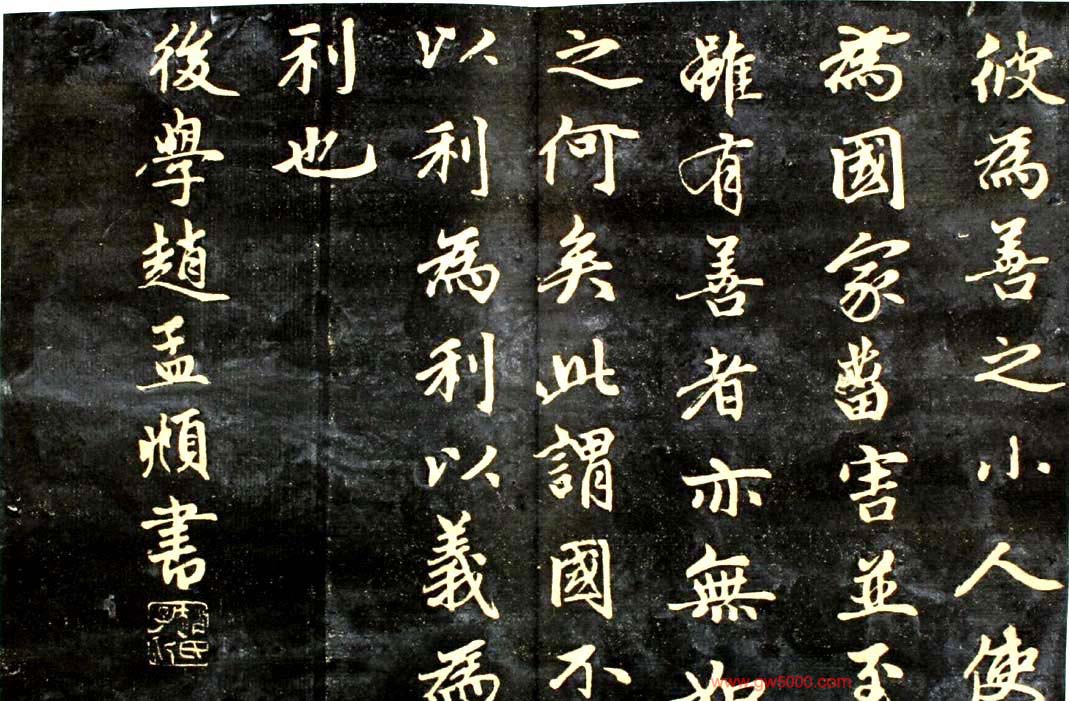 彼為善之小人使
為國家菑害並至
雖有善者亦無如
之何矣此謂國不
以利為利以義為
利也
後學趙孟頫書
www.gw5000.com